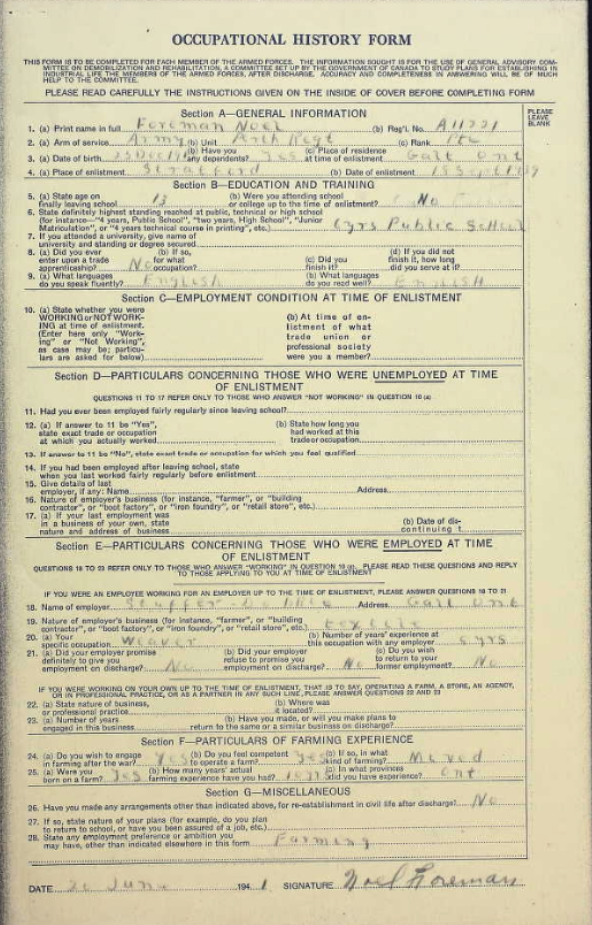 OCCUPATIONAL HISTORY FORM
THIS FORM IS TO BE COMPLETED FOR EACH MEMBER OF THE ARMED FORCES. THE INFORMATION SOUGHT IS FOR THE USE OF GENERAL ADVISORY COM-
MITTEE ON DEMOBILIZATION AND REHABILITATION, A COMMITTEE SET UP BY THE GOVERNMENT OF CANADA TO STUDY PLANS FOR ESTABLISHING IN
INDUSTRIAL LIFE THE MEMBERS OF THE ARMED FORCES, AFTER DISCHARGE. ACCURACY AND COMPLETENESS IN ANSWERING WILL BE OF MUCH
HELP TO THE COMMITTEE.
PLEASE READ CAREFULLY THE INSTRUCTIONS GIVEN ON THE INSIDE OF COVER BEFORE COMPLETING FORM
PLEASE
LEAVE
BLANK
Section A—GENERAL INFORMATION
1. (a) Print name in full Foreman Noel (b) Reg'l. No. A11221
2. (a) Arm of service Army (b) Unit Regt (c) Rank Pte
3. (a) Date of birth 25 Dec (b) Have you any dependents? Yes (c) Place of residence at time of enlistment Galt Ont
4. (a) Place of enlistment Stratford (b) Date of enlistment 18 Sept 1939
Section B—EDUCATION AND TRAINING
5. (a) State age on finally leaving school 13 (b) Were you attending school or college up to the time of enlistment? No
6. State definitely highest standing reached at public, technical or high school
(for instance—"4 years, Public School", "two years, High School", "Junior
Matriculation", or "4 years technical course in printing", etc.) 6yrs Public School
7. If you attended a university, give name of
university and standing or degree secured
8. (a) Did you ever enter upon a trade apprenticeship? No (b) If so, for what occupation? (c) Did you finish it? (d) If you did not finish it, how long did you serve at it?
9. (a) What languages do you speak fluently? English (b) What languages do you read well? English
Section C—EMPLOYMENT CONDITION AT TIME OF ENLISTMENT
10. (a) State whether you were WORKING or NOT WORKING at time of enlistment. (Enter here only "Working" or "Not Working", as case may be; particulars are asked for below) (b) At time of enlistment of what trade union or professional society were you a member?
Section D—PARTICULARS CONCERNING THOSE WHO WERE UNEMPLOYED AT TIME
OF ENLISTMENT
QUESTIONS 11 TO 17 REFER ONLY TO THOSE WHO ANSWER "NOT WORKING" IN QUESTION 10 (a)
11. Had you ever been employed fairly regularly since leaving school?
12. (a) If answer to 11 be "Yes", state exact trade or occupation at which you actually worked (b) State how long you had worked at this trade or occupation
13. If answer to 11 be "No", state exact trade or occupation for which you feel qualified
14. If you had been employed after leaving school, state
when you last worked fairly regularly before enlistment
15. Give details of last
employer, if any: Name Address
16. Nature of employer's business (for instance, "farmer", or "building
contractor", or "boot factory", or "iron foundry", or "retail store", etc.)
17. (a) If your last employment was in a business of your own, state nature and address of business (b) Date of discontinuing t
Section E—PARTICULARS CONCERNING THOSE WHO WERE EMPLOYED AT TIME
OF ENLISTMENT
QUESTIONS 18 TO 23 REFER ONLY TO THOSE WHO ANSWER "WORKING" IN QUESTION 10 (a). PLEASE READ THESE QUESTIONS AND REPLY
TO THOSE APPLYING TO YOU AT TIME OF ENLISTMENT
IF YOU WERE AN EMPLOYEE WORKING FOR AN EMPLOYER UP TO THE TIME OF ENLISTMENT, PLEASE ANSWER QUESTIONS 18 TO 21
18. Name of employer Address Galt Ont
19. Nature of employer's business (for instance, "farmer", or "building
contractor", or "boot factory", or "iron foundry", or "retail store", etc.) textile
20. (a) Your specific occupation Weaver (b) Number of years' experience at this occupation with any employer yrs
21. (a) Did your employer promise definitely to give you employment on discharge? No (b) Did your employer refuse to promise you employment on discharge? No (c) Do you wish to return to your former employment? No
IF YOU WERE WORKING ON YOUR OWN UP TO THE TIME OF ENLISTMENT, THAT IS TO SAY, OPERATING A FARM, A STORE, AN AGENCY,
OR IN PROFESSIONAL PRACTICE, OR AS A PARTNER IN ANY SUCH LINE, PLEASE ANSWER QUESTIONS 22 AND 23
22. (a) State nature of business, or professional practice (b) Where was it located?
23. (a) Number of years engaged in this business (b) Have you made, or will you make plans to return to the same or a similar business on discharge?
Section F—PARTICULARS OF FARMING EXPERIENCE
24. (a) Do you wish to engage in farming after the war? Yes (b) Do you feel competent to operate a farm? Yes (c) If so, in what kind of farming? Mixed
25. (a) Were you born on a farm? Yes (b) How many years' actual farming experience have you had? (c) In what provinces did you have experience? Ont
Section G—MISCELLANEOUS
26. Have you made any arrangements other than indicated above, for re-establishment in civil life after discharge? No
27. If so, state nature of your plans (for example, do you plan
to return to school, or have you been assured of a job, etc.)
28. State any employment preference or ambition you
may have, other than indicated elsewhere in this form Farming
DATE 20 June 194 1 SIGNATURE Noel Foreman